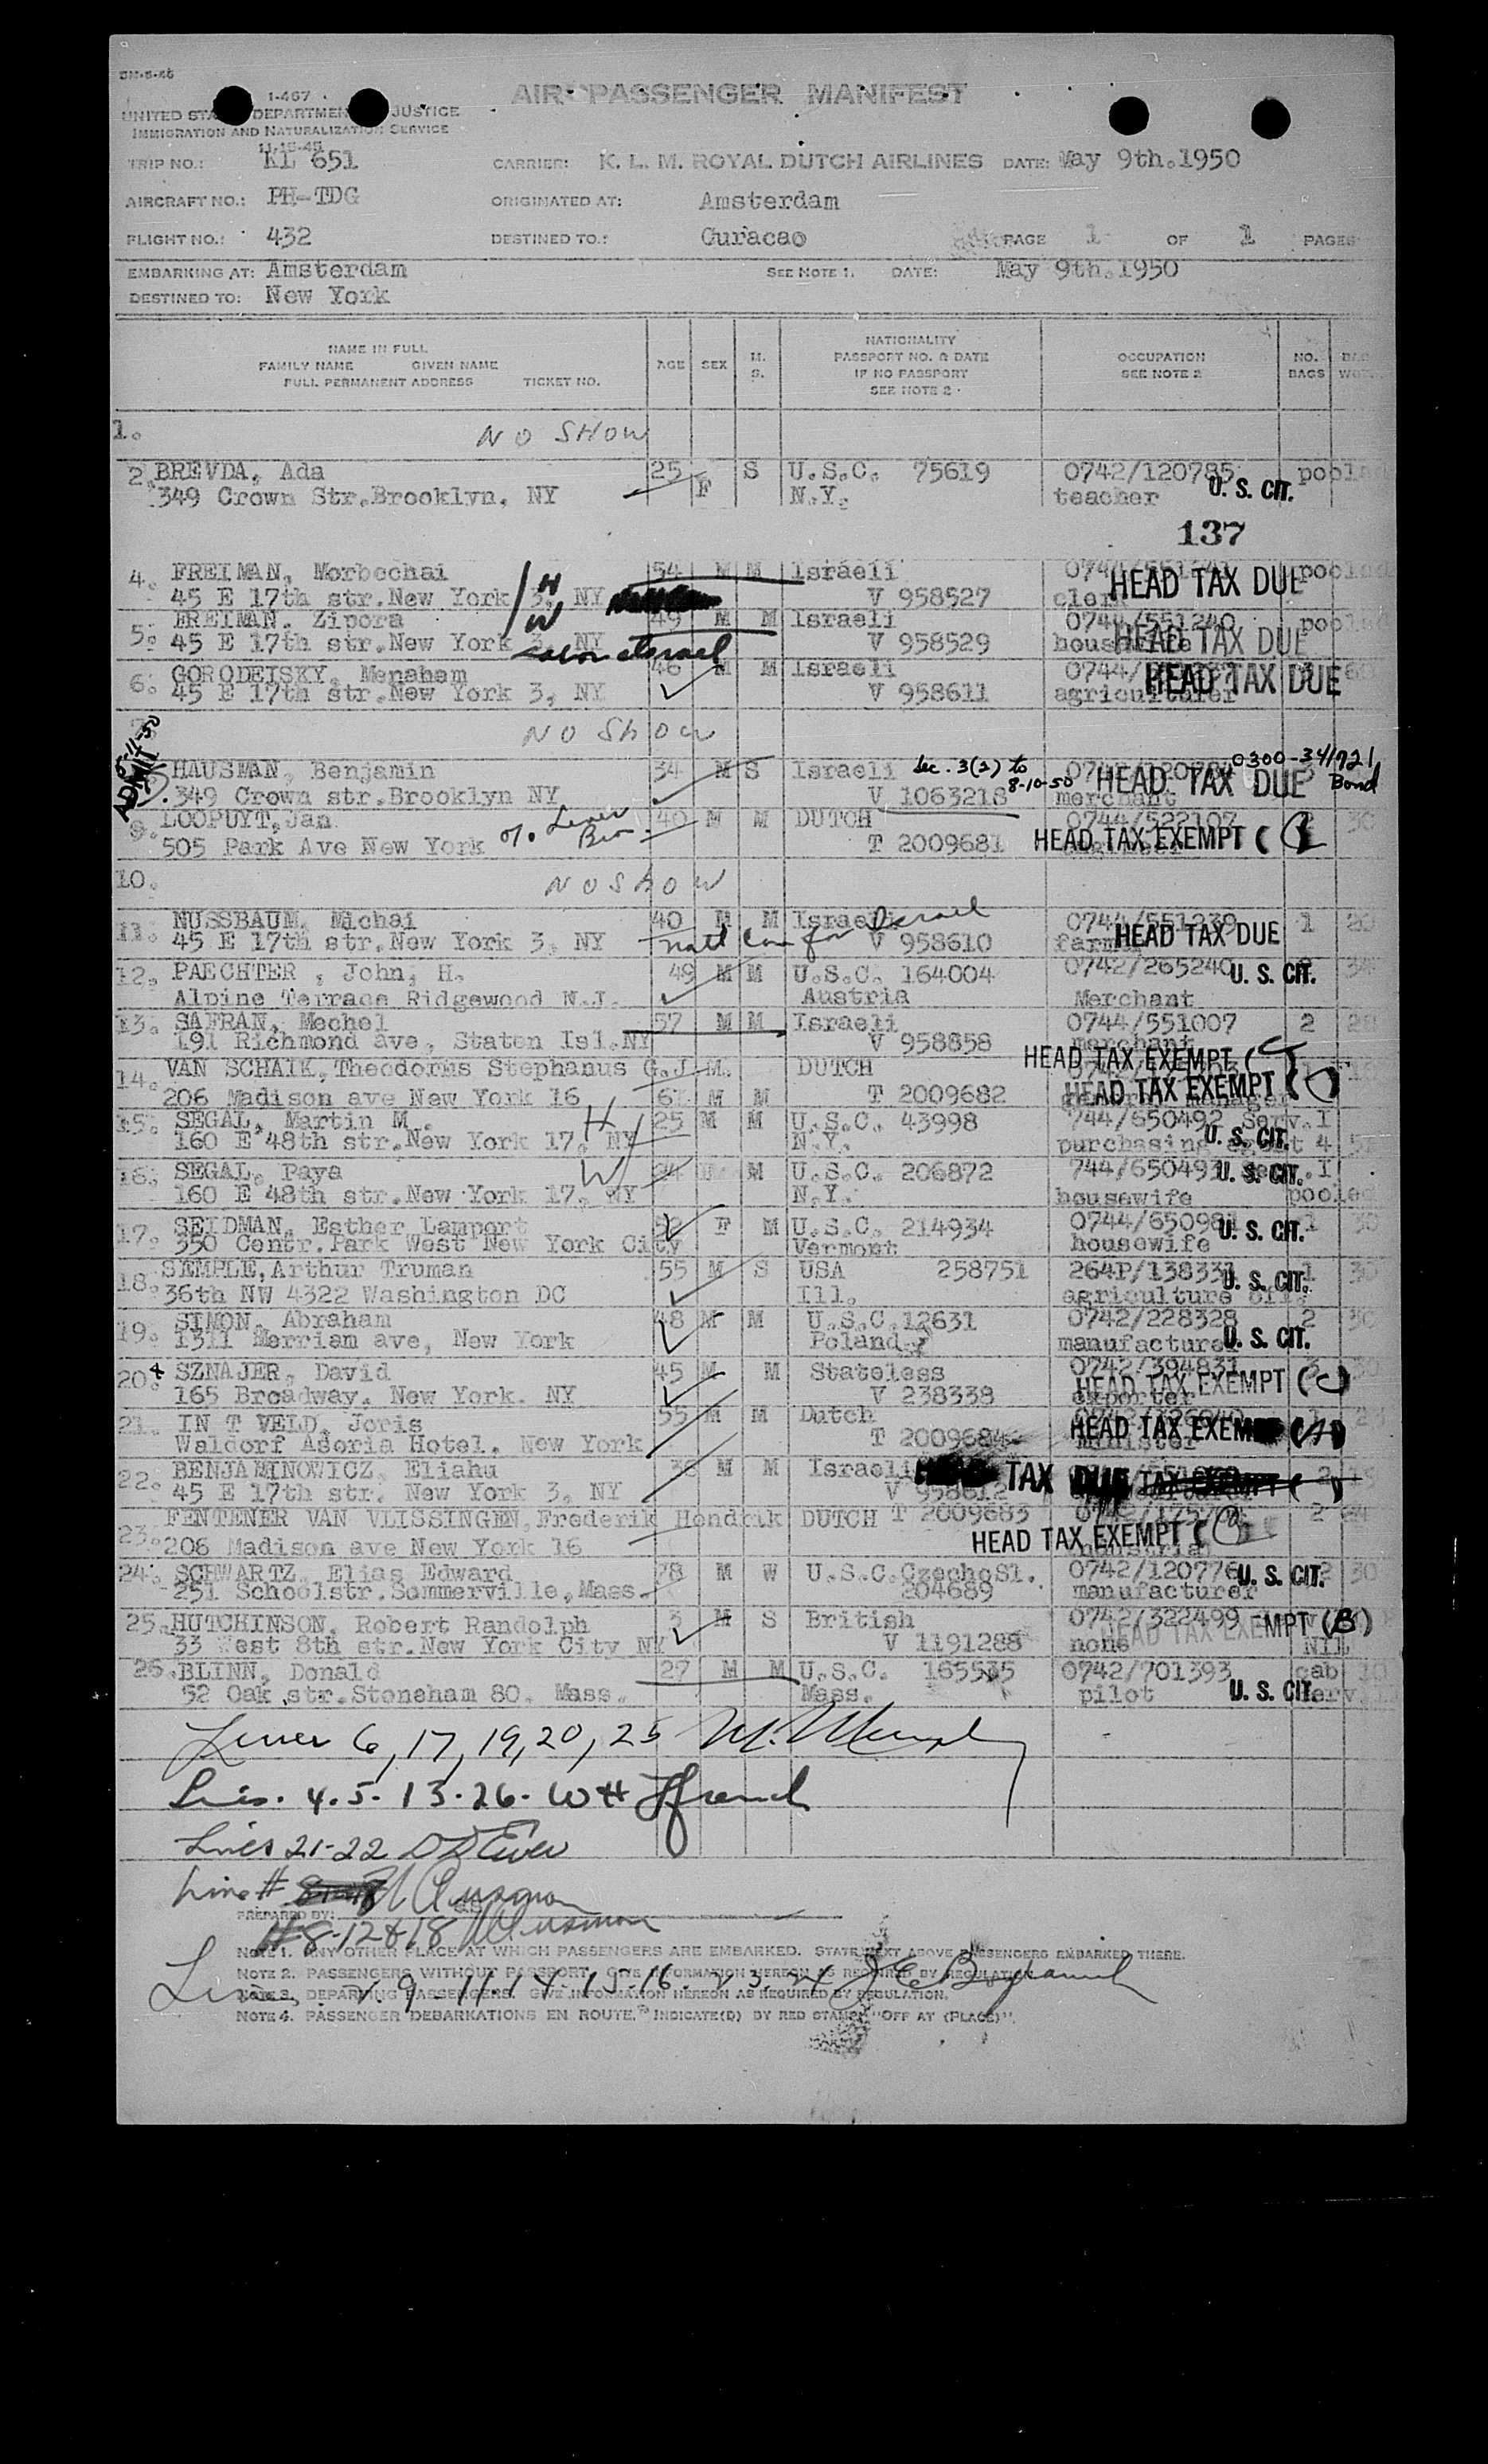 AIR PASSENGER MANIFEST
1-467
UNITED STA DEPARTMEN JUSTICE
IMMIGRATION AND NATURALIZATION SERVICE
11-15-45
TRIP NO.: KL 651 CARRIER: K. L. M. ROYAL DUTCH AIRLINES DATE: May 9th.1950
AIRCRAFT NO.: PH-TDG ORIGINATED AT: Amsterdam
FLIGHT NO.: 432 DESTINED TO.: Curacao PAGE 1 OF 1 PAGES
EMBARKING AT: Amsterdam SEE NOTE 1. DATE: May 9th.1950
DESTINED TO: New York
NAME IN FULL
FAMILY NAME GIVEN NAME
FULL PERMANENT ADDRESS TICKET NO.
AGE SEX M. S.
NATIONALITY
PASSPORT NO. & DATE
IF NO PASSPORT
SEE NOTE 2
OCCUPATION
SEE NOTE 2
NO. BAGS
1. NO SHOW
2. BREVDA, Ada 25 S U.S.C. 75619 0742/120785
349 Crown Str.Brooklyn, NY F N.Y. teacher U. S. CIT.
137
4. FREIMAN, Morbechai 54 M M Israeli
45 E 17th str.New York 3, NY H V 958527 HEAD TAX DUE
W
5. FREIMAN, Zipora 49 M M Israeli 0744/551240
45 E 17th str.New York 3, NY V 958529 housewife HEAD TAX DUE
6. GORODEISKY, Menahem 46 M M Israeli
45 E 17th str.New York 3, NY V 958611 agriculturer HEAD TAX DUE
NO ShOW
5-11-50 ADMIT
HAUSMAN, Benjamin 34 M S Israeli Sec. 3(2) to 8-10-50 0300-341721 Bond
349 Crown str.Brooklyn NY V 1063218 merchant HEAD TAX DUE
9. LOOPUYT,Jan 40 M M DUTCH 0744/522107 30
505 Park Ave New York T 2009681 HEAD TAX EXEMPT
10. NOSHOW
11. NUSSBAUM, Michai 40 M M Israeli 0744/551239 1
45 E 17th str.New York 3, NY V 958610 HEAD TAX DUE
12. PAECHTER , John, H. 49 M M U.S.C. 164004 0742/265240 U. S. CIT.
Alpine Terrace Ridgewood N.J. Austria Merchant
13. SAFRAN, Mechel 57 M M Israeli 0744/551007 2
191 Richmond ave, Staten Isl.NY V 958858 merchant
HEAD TAX EXEMPT
14. VAN SCHAIK,Theodorus Stephanus G.J.M. DUTCH
206 Madison ave New York 16 M M T 2009682 HEAD TAX EXEMPT
15. SEGAL, Martin M. H 25 M M U.S.C. 43998 744/650492 Serv.I
160 E 48th str.New York 17, NY N.Y. purchasing U. S. CIT. 4
16. SEGAL, Paya W M U.S.C. 206872 U. S. CIT.
160 E 48th str.New York 17, NY N.Y. housewife pooled
17. SEIDMAN, Esther Lamport 52 F M U.S.C. 214934 U. S. CIT. 30
350 Centr.Park West New York City Vermont housewife
18. SEMPLE,Arthur Truman 55 M S USA 258751 264P/138331 U. S. CIT. 30
36th NW 4322 Washington DC Ill. agriculture
19. SIMON, Abraham 48 M M U.S.C.12631 0742/228328 2 30
1311 Merriam ave, New York Poland manufacturer U. S. CIT.
20. SZNAJER, David 45 M M Stateless 0742/394831 3
165 Broadway. New York. NY V 238338 exporter HEAD TAX EXEMPT (C)
21. IN T VELD, Joris 55 M M Dutch
Waldorf Asoria Hotel, New York T 2009684 minister HEAD TAX EXEMPT
22. BENJAMINOWICZ, Eliahu M M Israeli TAX
45 E 17th str. New York 3, NY V 958612
23. FENTENER VAN VLISSINGEN,Frederik Hendrik DUTCH T 2009683 2
206 Madison ave New York 16 HEAD TAX EXEMPT
24. SCHWARTZ, Elias Edward 78 M W U.S.C.CzechoSl. 0742/120776 U. S. CIT. 2 30
251 Schoolstr.Sommerville,Mass. 204689 manufacturer
25. HUTCHINSON, Robert Randolph 3 M S British 0742/322499
33 West 8th str.New York City NY V 1191288 none HEAD TAX EXEMPT (B) NIL
26. BLINN, Donald 27 M M U.S.C. 0742/701393 cab
52 Oak str.Stoneham 80. Mass. Mass. pilot U. S. CIT.
6, 17, 19, 20, 25
4.5.13.26.
Lines 21-22
Line #
PREPARED BY:
#8-12&18
NOTE 1. ANY OTHER PLACE AT WHICH PASSENGERS ARE EMBARKED. STATE NEXT ABOVE PASSENGERS EMBARKED THERE.
NOTE 2. PASSENGERS WITHOUT PASSPORT, GIVE INFORMATION HEREON AS REQUIRED BY REGULATION.
NOTE 3. DEPARTING PASSENGERS. GIVE INFORMATION HEREON AS REQUIRED BY REGULATION.
NOTE 4. PASSENGER DEBARKATIONS EN ROUTE, INDICATE(D) BY RED STAMP "OFF AT (PLACE)".